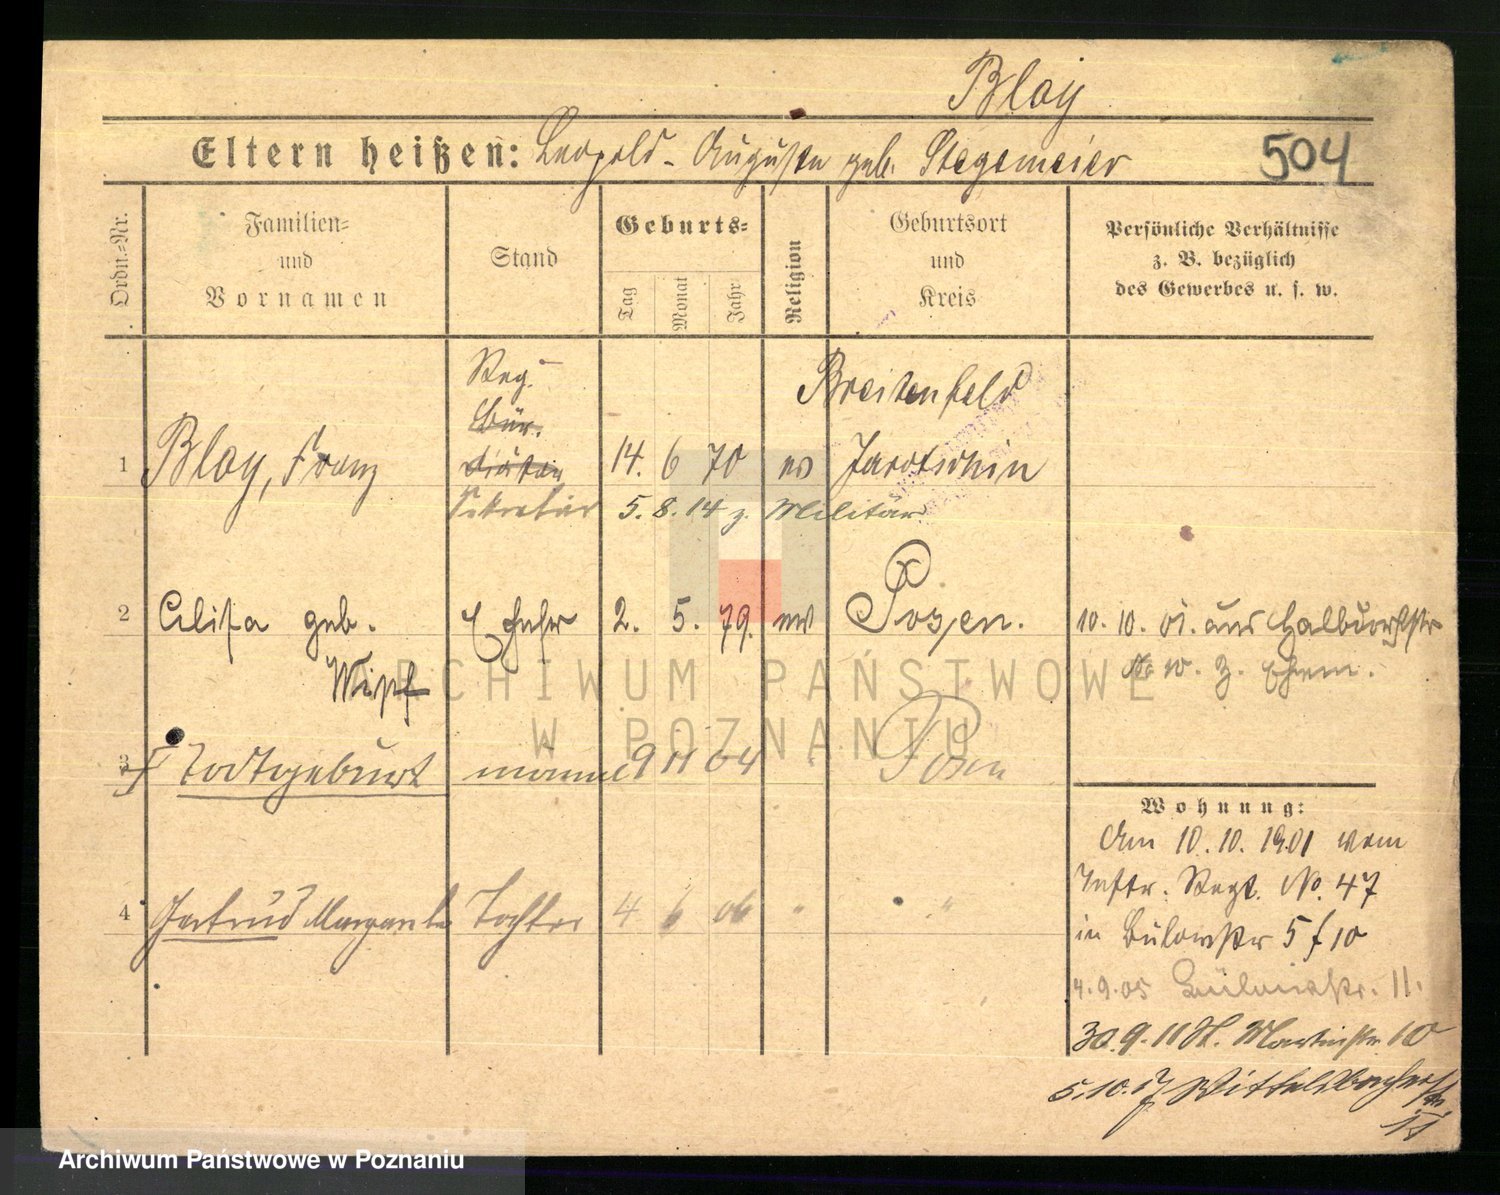 Bloy
Eltern heißen: Leopold - Auguste geb. Stegemeier
504
Ordn.-Nr.
Familien-
und
Vornamen
Stand
Geburts-
Tag
Monat
Jahr
Religion
Geburtsort
und
Kreis
Persönliche Verhältnisse
z. B. bezüglich
des Gewerbes u. s. w.
Reg.
Bür.
diätar
Sekretär
1 Bloy, Franz 14. 6 70 ev
Breitenfeld
Jarotschin
5. 8. 14 z. Militär
2 Celisa geb.
Wipf
Ehefr 2. 5. 79. ev Posen.
10. 10. 01. aus Halbdorfstr
No w. z. Ehem.
3 Todtgeburt männl 9 11 04 Posen
4 Gertrud Margarete Tochter 4 6 06 " "
Wohnung:
Am 10. 10. 1901 vom
Inftr. Regt. No. 47
in Bülowstr 5 f 10
4. 9. 05 Bülowstr. 11.
30. 9. 11 St. Martinstr 10
5. 10. 17 Wittelsbacherstr
11
ARCHIWUM PAŃSTWOWE
W POZNANIU
Archiwum Państwowe w Poznaniu